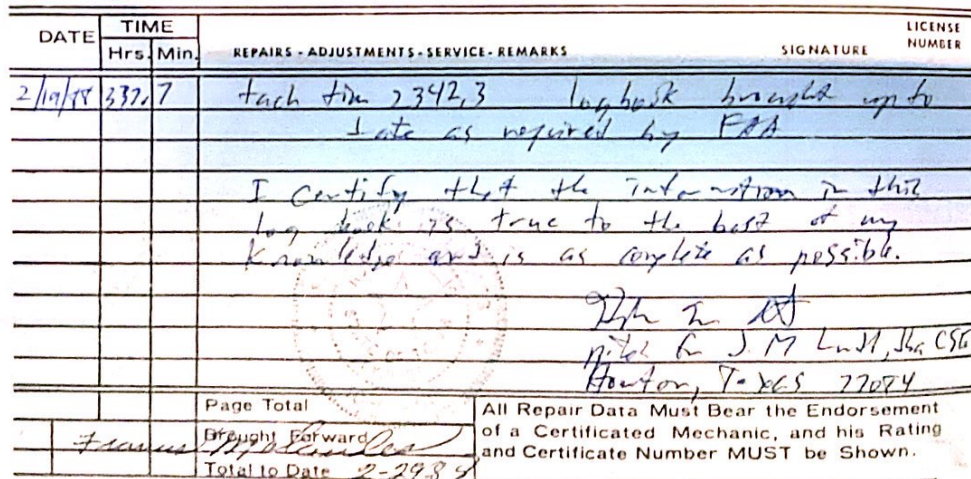 DATE TIME LICENSE
Hrs. Min. REPAIRS - ADJUSTMENTS - SERVICE - REMARKS SIGNATURE NUMBER
2/19/88 337.7 tach tim 2342.3 logbook brought up to
date as required by FAA
I certify that the information in this
log book is true to the best of my
knowledge and is as complete as possible.
pilot for J. M.
Houston, Texas 77084
Page Total
Brought Forward
Total to Date 2-29-88
All Repair Data Must Bear the Endorsement
of a Certificated Mechanic, and his Rating
and Certificate Number MUST be Shown.